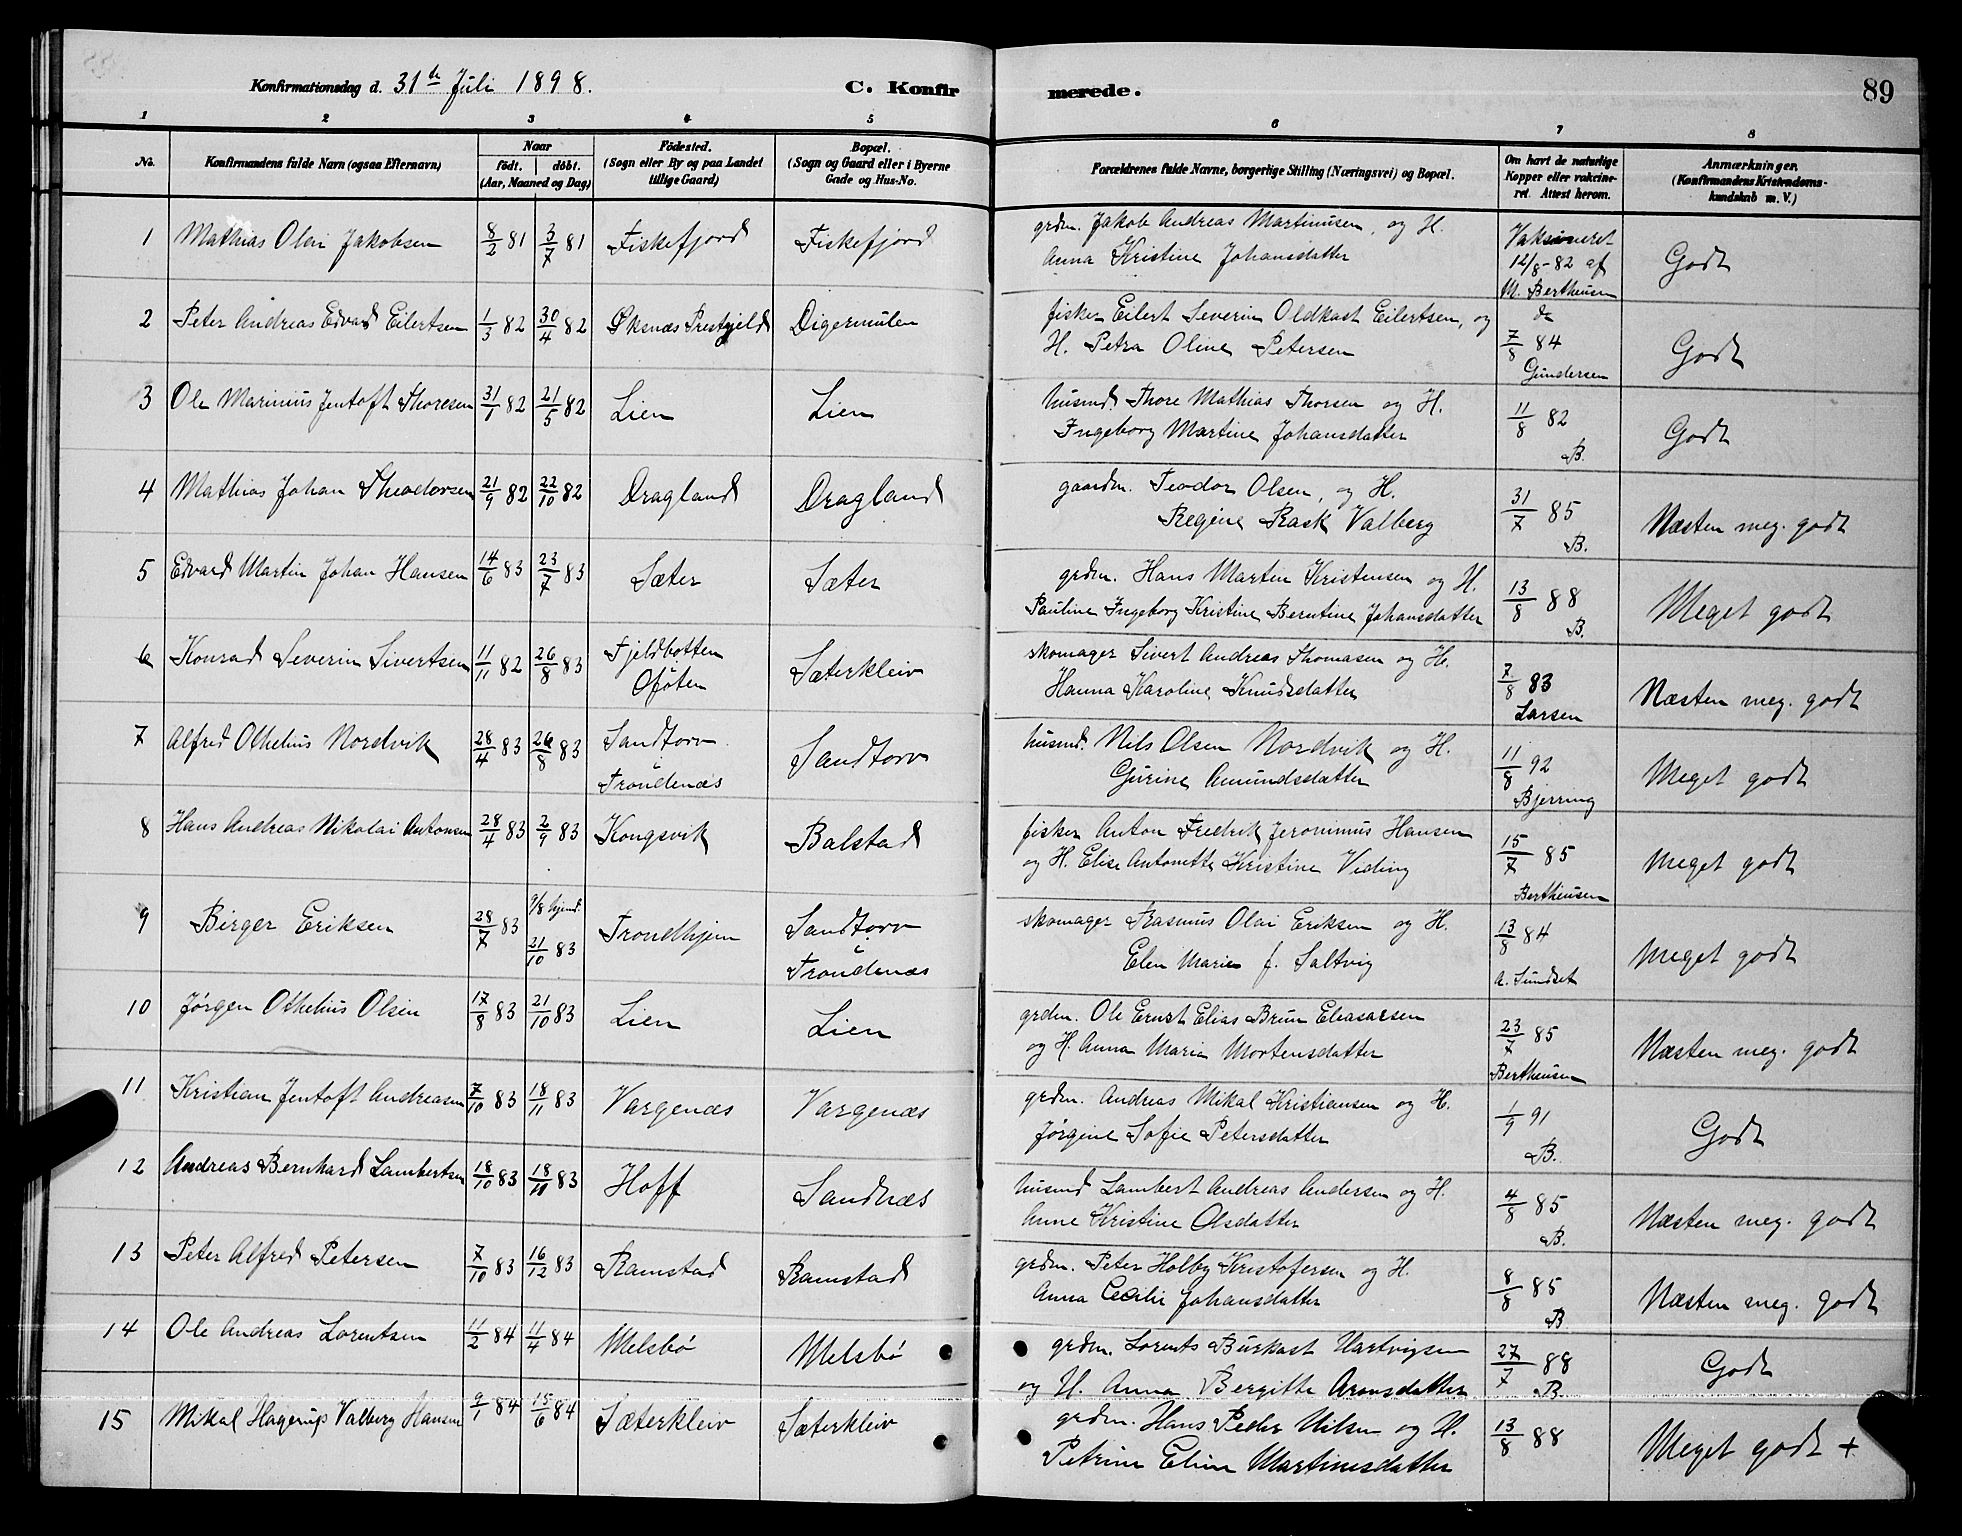 Konfirmationsdag d. 31te Juli 1898.
C. Konfirmerede.
89
1 2 3 4 5 6 7 8
No.
Konfirmandens fulde Navn (ogsaa Efternavn)
Naar
födt. döbt.
(Aar, Maaned og Dag)
Födested.
(Sogn eller By og paa Landet
tillige Gaard)
Bopæl.
(Sogn og Gaard eller i Byerne
Gade og Hus-No.
Forældrenes fulde Navne, borgerlige Stilling (Næringsvei) og Bopæl.
Om havt de naturlige
Kopper eller vakcine-
ret. Attest herom.
Anmærkninger.
(Konfirmandens Kristendoms-
kundskab m. V.)
1 Mathias Olai Jakobsen 8/2 81 3/7 81 Fiskefjord Fiskefjord
grdm. Jakob Andreas Martinusen, og H.
Anna Kristine Johansdatter
Vaksineret
12/8-82 af
M. Bertheusen
Godt
2 Peter Andreas Edvard Eilertsen 1/3 82 30/4 82 Øksnæs Prestgjeld Digermulen
fisker Eilert Severin Oldkast Eilertsen, og
H. Petra Oline Petersen
do
7/8 84
Gundersen
Godt
3 Ole Marinius Jentoft Thoresen 31/1 82 21/5 82 Lien Lien
husmd. Thore Mathias Thorsen og H.
Ingeborg Martine Johansdatter
11/8 82
B.
Godt
4 Mathias Johan Theodorsen 21/9 82 22/10 82 Dragland Dragland
gaardm. Teodor Olsen, og H.
Regine Rask Valberg
31/7 85
B.
Næsten meg. godt
5 Edvard Martin Johan Hansen 14/6 83 23/7 83 Sæter Sæter
grdm. Hans Marten Kristensen og H.
Pauline Ingeborg Kristine Berntine Johansdatter
13/8 88
B.
Meget godt
6 Konrad Severin Sivertsen 11/11 82 26/8 83 Fjeldbotten
Ofoten
Sæterkleiv
skomager Sivert Andreas Thomasen og H.
Hanna Karoline Knudsdatter
7/8 83
Larsen
Næsten meg. godt
7 Alfred Othelius Nordvik 28/4 83 26/8 83 Sandtorv
Trondenæs
Sandtorv
husmd. Nils Olsen Nordvik og H.
Gurine Amundsdatter
11/8 92
Bjerring
Meget godt
8 Hans Andreas Nikolai Antonsen 28/4 83 2/9 83 Kongsvik Balstad
fisker Anton Fredrik Jeronimus Hansen
og H. Elise Antonette Kristine Viding
15/7 85
Bertheusen
Meget godt
9 Birger Eriksen 28/7 83 9/8 hjemd.
21/10 83
Trondhjem
Sandtorv
i
Trondenæs
skomager Rasmus Olai Eriksen og H.
Elen Marie f. Saltvig
13/8 84
A. Sundset
Meget godt
10 Jørgen Othelius Olsen 17/8 83 21/10 83 Lien Lien
grdm. Ole Ernst Elias Brun Eleasarsen
og H. Anna Maria Mortensdatter
23/7 85
Bertheusen
Næsten meg. godt
11 Kristian Jentoft Andreasen 7/10 83 18/11 83 Vargenæs Vargenæs
grdm. Andreas Mikal Kristiansen og H.
Jørgine Sofie Petersdatter
1/9 91
B.
Godt
12 Andreas Bernhard Lambertsen 18/10 83 18/11 83 Hoff Sandnæs
husmd Lambert Andreas Andersen og H.
Anne Kristine Olsdatter
4/8 85
B.
Næsten meg. godt
13 Peter Alfred Petersen 7/10 83 16/12 83 Ramstad Ramstad
grdm. Peter Holby Kristofersen og H.
Anna Cecilie Johansdatter
8/8 85
B.
Næsten meg. godt
14 Ole Andreas Lorentsen 11/2 84 11/4 84 Melsbö Melsbö
grdm. Lorents Burkast Hartvigsen
og H. Anna Bergitte Aronsdatter
27/7 88
B.
Godt
15 Mikal Hagerup Valberg Hansen 9/1 84 15/6 84 Sæterkleiv Sæterkleiv
grdm. Hans Peder Nilsen og H.
Petrine Eline Martinusdatter
13/8 88
Meget godt +